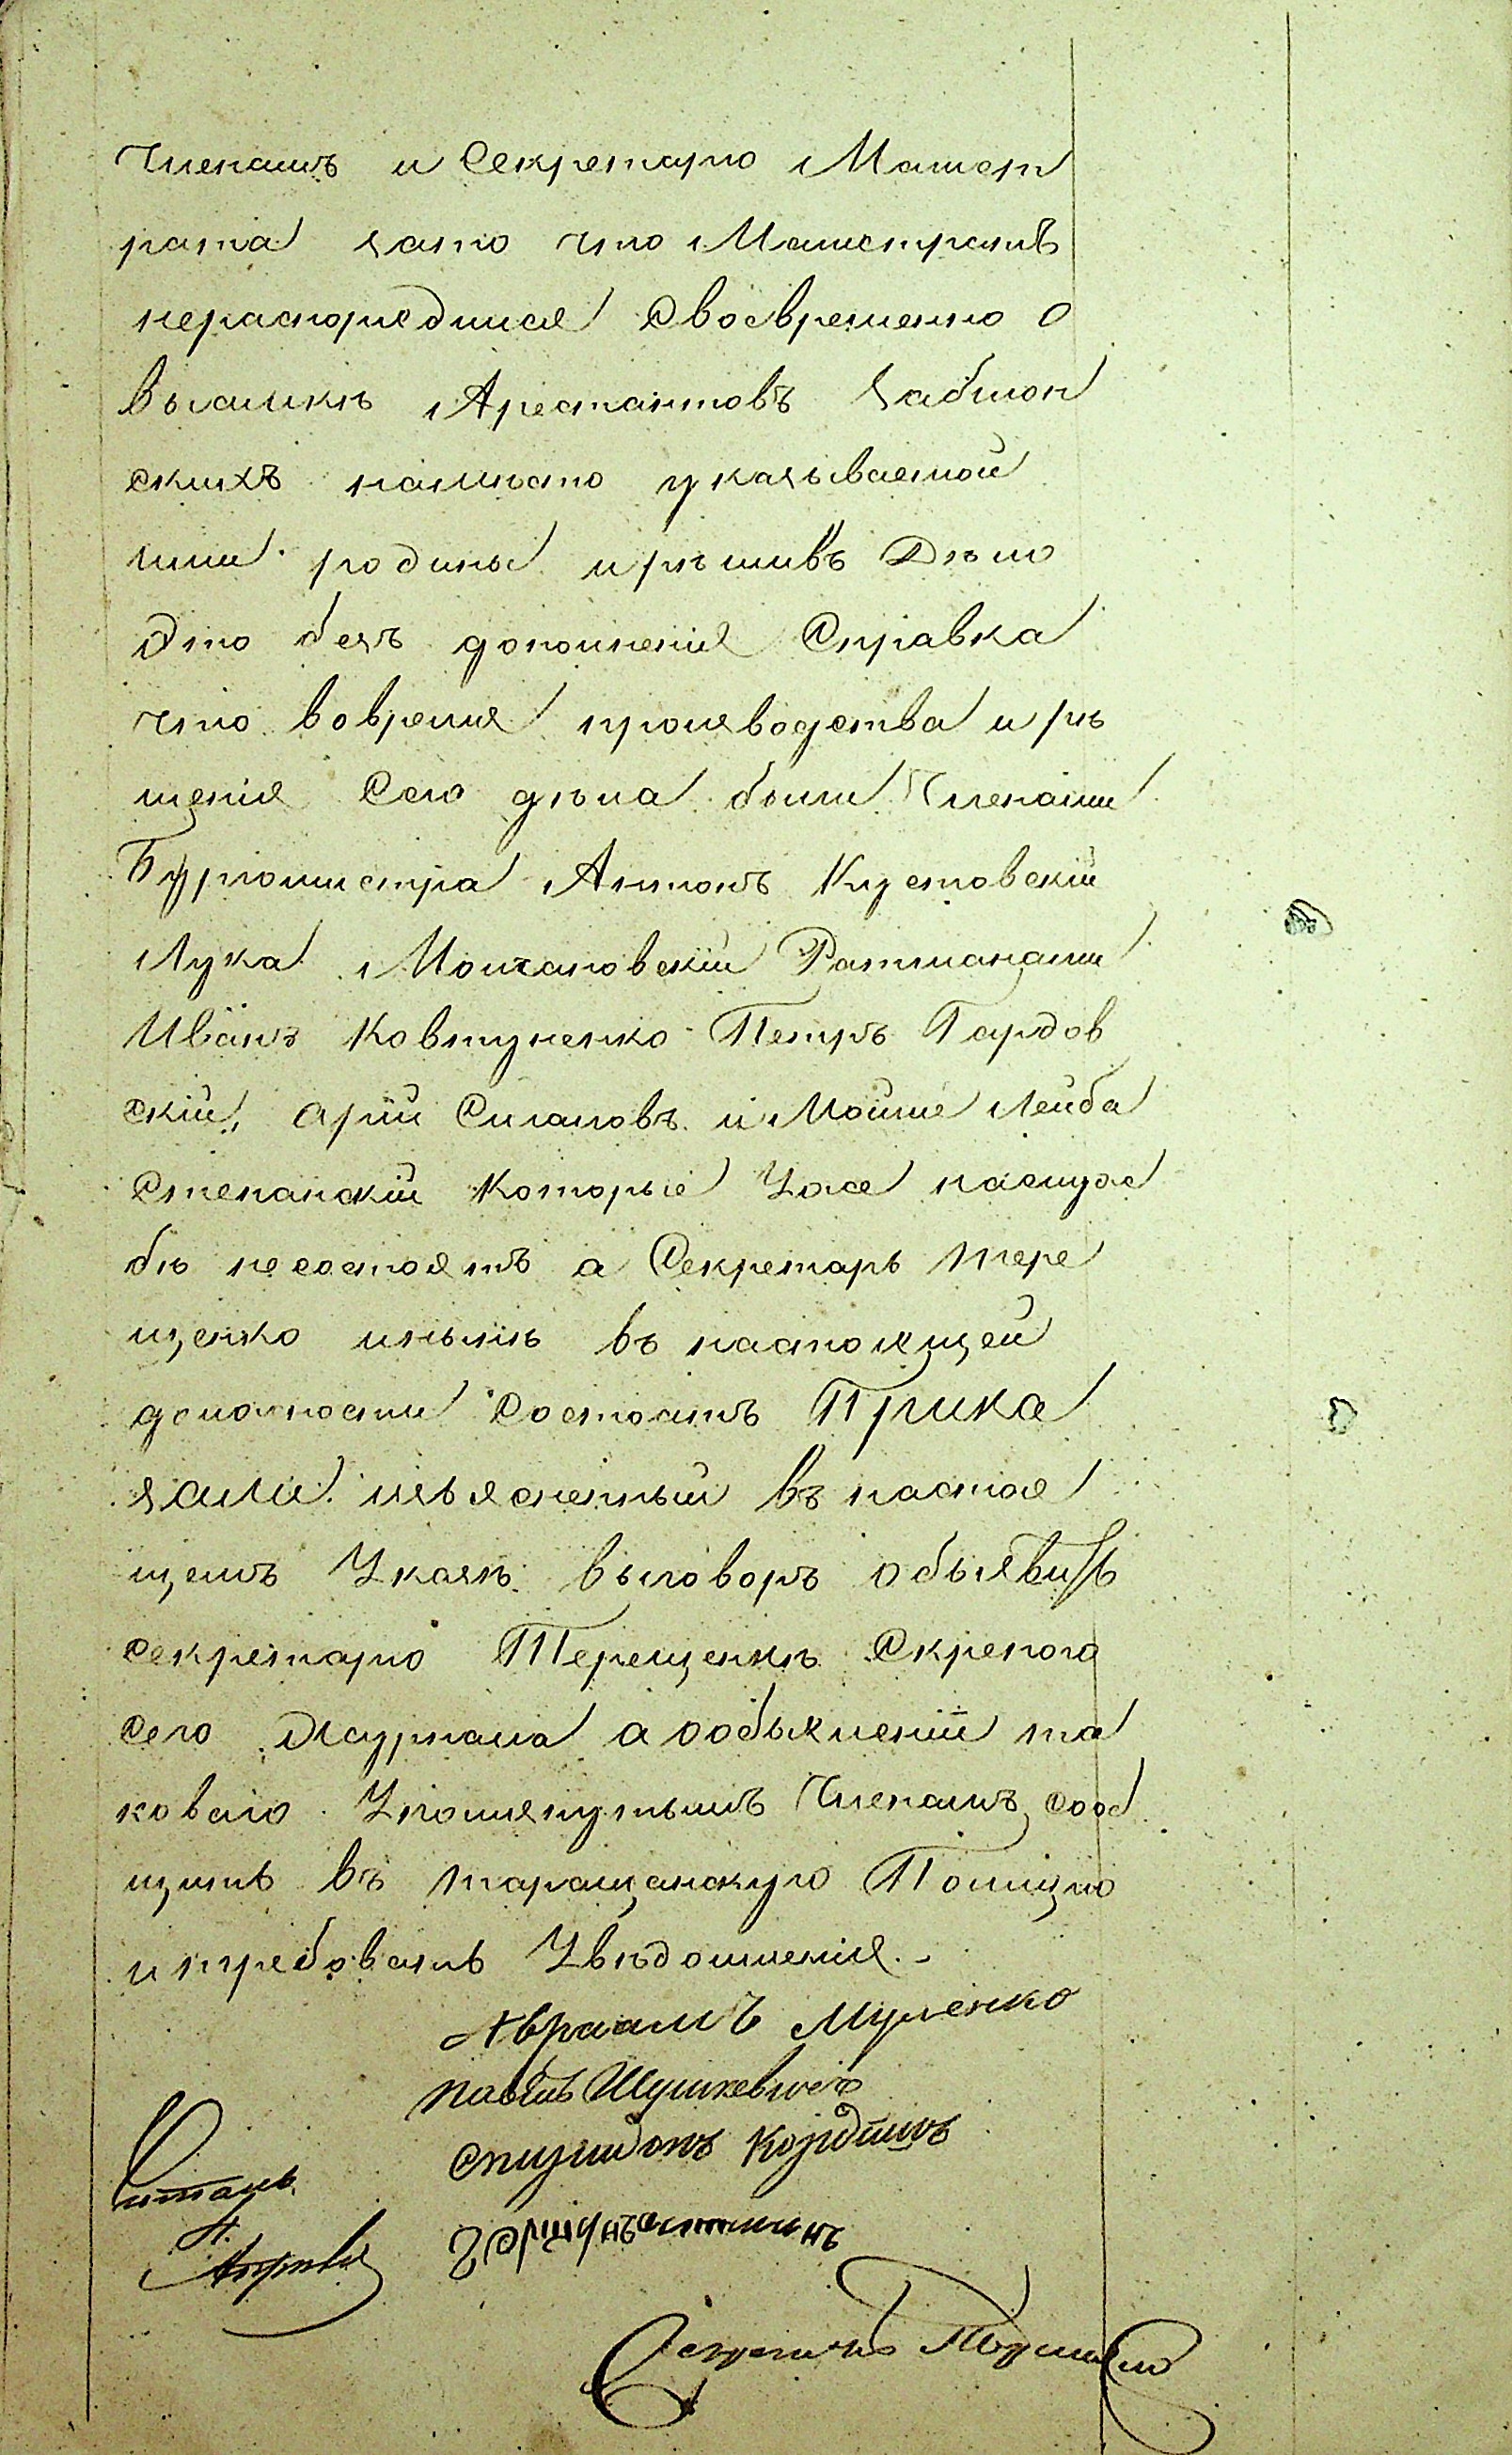 Членамъ и Секретарю Магист
рата зато что Магистратъ
нераспорядился Своевременно о
высылкѣ Арестантовъ Заблон
скихъ намѣсто указываемой
ими родины и рѣшивъ Дѣло
Это безъ дополненія Справка
что вовремя производства и рѣ
шенія Сего дѣла были Членами
Бургомистра Антонъ Кустовскій
Лука Молчановскій Ратманами
Иванъ Ковтуненко Петръ Гардов
скій, Арій Сигаловъ и Мойше Лейба
Степанскій Которые Уже наслуж
бѣ несостоятъ а Секретарь Тере
щенко инынѣ въ настоящей
должности Состоитъ Прика
зали изъясненный въ настоя
щемъ Указѣ выговоръ объявить
Секретарю Терещенкѣ Скрепою
Сего Журнала а ообъявленіи та
коваго Упомянутымъ Членамъ сооб
щить въ Таращанскую Полицію
и требовать Увѣдомленія.-
Авраамъ Мусіенко
Павелъ Шушкевичъ
Спиридонъ
Читалъ
Секретарь